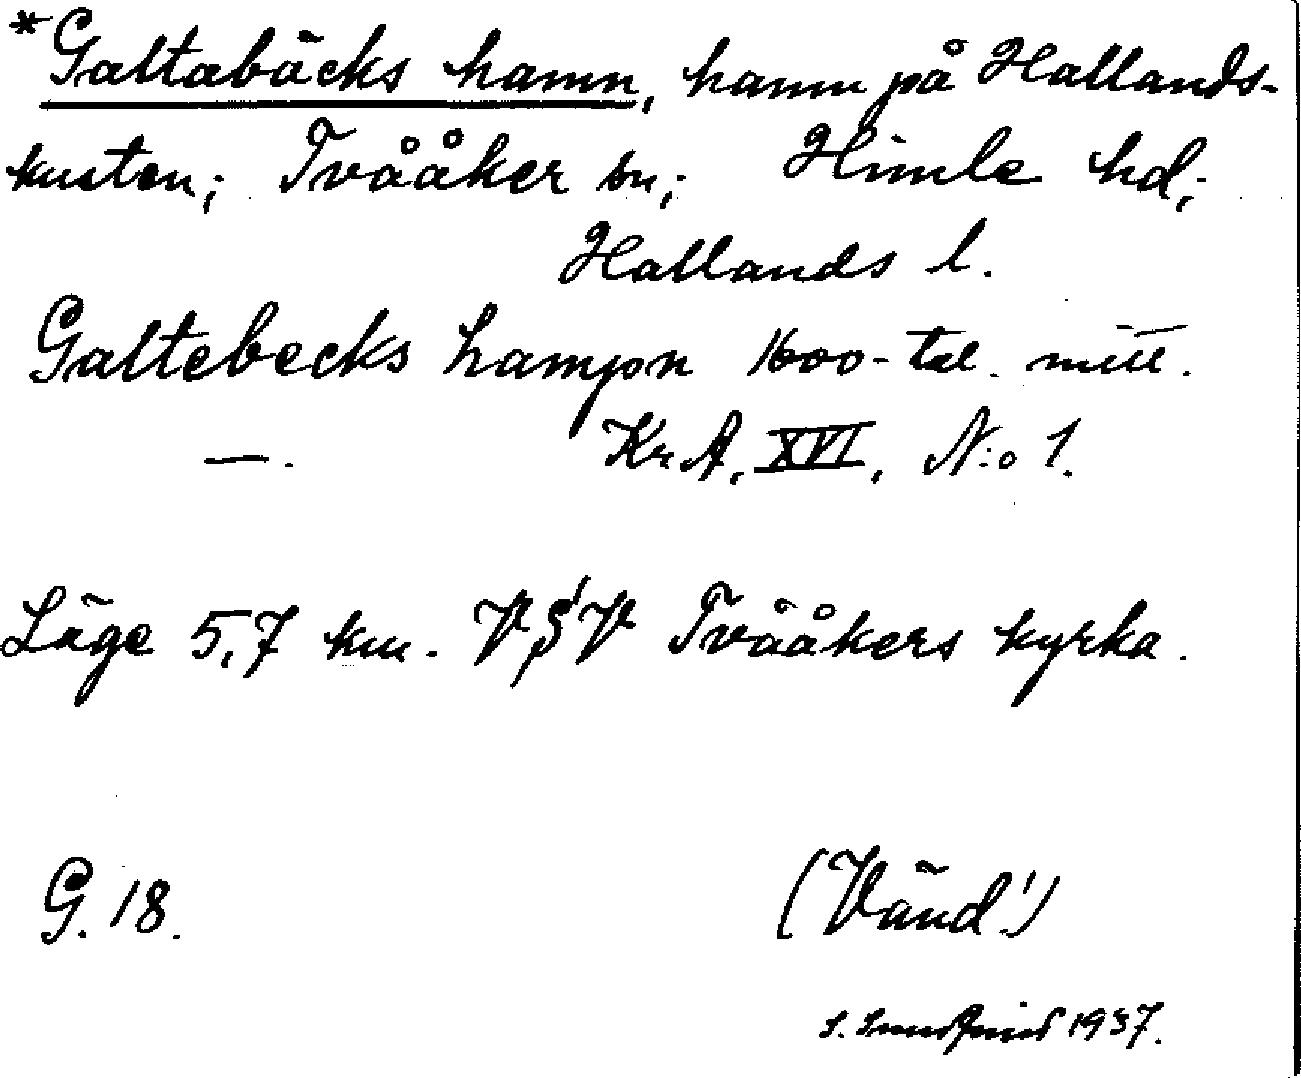 *Galtabäcks hamn, hamn på Hallands-
kusten; Tvååker sn; Himle hd;
Hallands l.
Galtebecks hampn 1600-tal. mitt.
—. Kr.A. XVI, N:o 1.
Läge 5,7 km. VSV Tvååkers kyrka.
G. 18.
(Vänd!)
S. 1937.